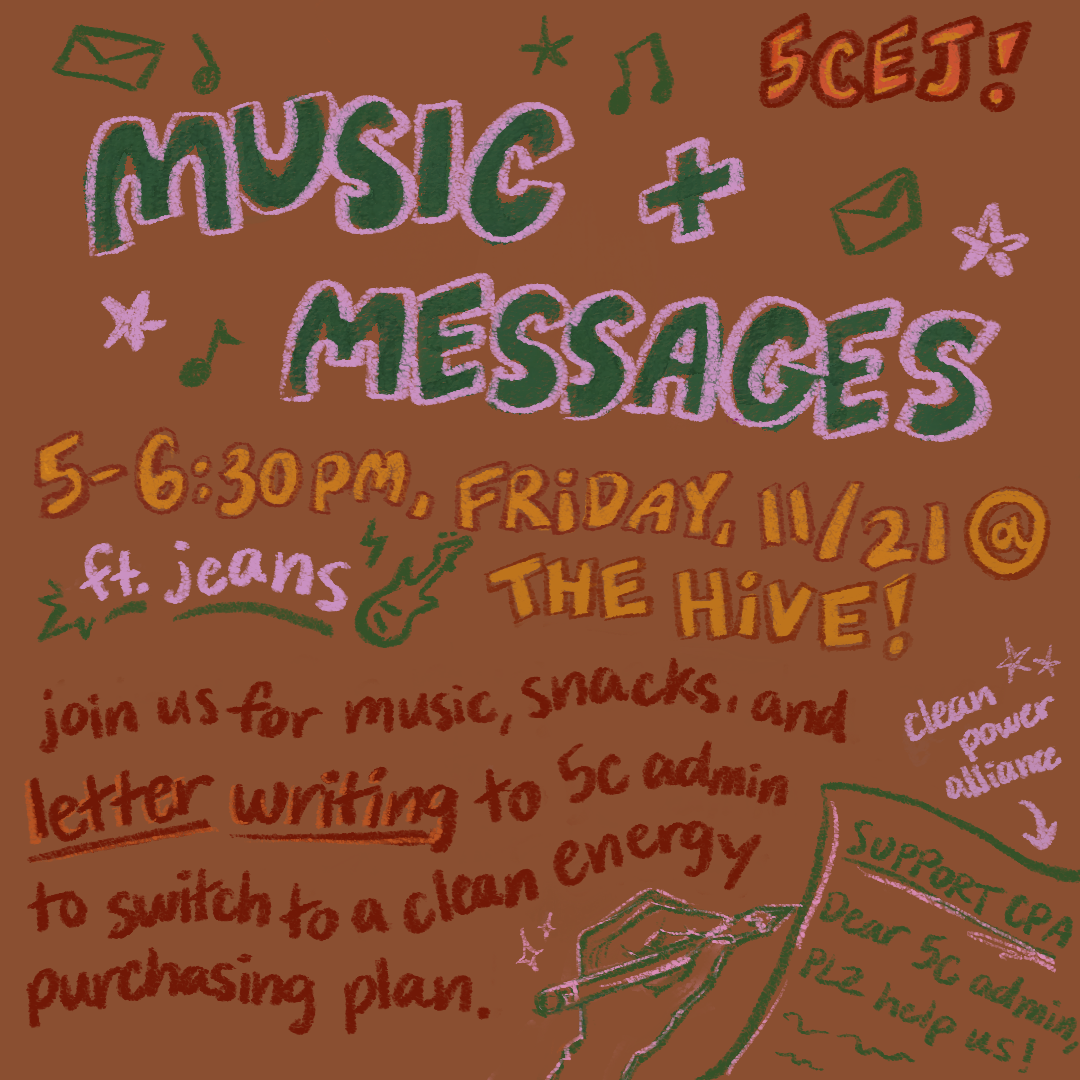 5CEJ!
MUSIC +
MESSAGES
5-6:30 PM, FRIDAY, 11/21 @
THE HIVE!
ft. jeans
join us for music, snacks, and
letter writing to 5C admin
to switch to a clean energy
purchasing plan.
clean
power
alliance
SUPPORT CPA
Dear 5C admin,
PLZ help us!